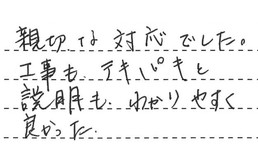 親切な対応でした。
工事も、テキパキと
説明も、わかりやすく
良かった。